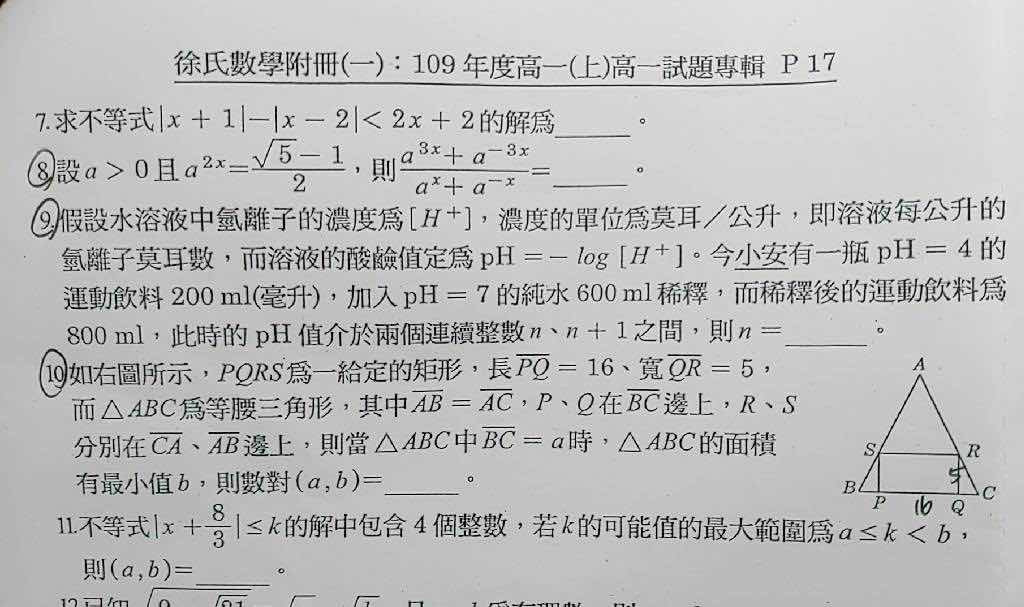 徐氏數學附冊(一)：109 年度高一(上)高一試題專輯 P 17
7.求不等式|x + 1|−|x − 2|< 2x + 2的解爲_____。
8.設a > 0且a^{2x}=\frac{\sqrt{5}−1}{2}，則\frac{a^{3x}+a^{−3x}}{a^x+a^{−x}}=_____。
9.假設水溶液中氫離子的濃度爲[H⁺]，濃度的單位爲莫耳／公升，即溶液每公升的
氫離子莫耳數，而溶液的酸鹼值定爲 pH =− log [H⁺]。今小安有一瓶 pH = 4 的
運動飲料 200 ml(毫升)，加入 pH = 7 的純水 600 ml 稀釋，而稀釋後的運動飲料爲
800 ml，此時的 pH 值介於兩個連續整數 n、n + 1 之間，則 n =_____。
10.如右圖所示，PQRS爲一給定的矩形，長\overline{PQ} = 16、寬\overline{QR} = 5，
而△ABC爲等腰三角形，其中\overline{AB} = \overline{AC}，P、Q在\overline{BC}邊上，R、S
分別在\overline{CA}、\overline{AB}邊上，則當△ABC中\overline{BC} = a時，△ABC的面積
有最小值b，則數對(a, b)=_____。
A
S
R
5
B
P
16
Q
C
11.不等式|x + \frac{8}{3}|≤k的解中包含 4 個整數，若k的可能值的最大範圍爲a≤k < b，
則(a, b)=_____。